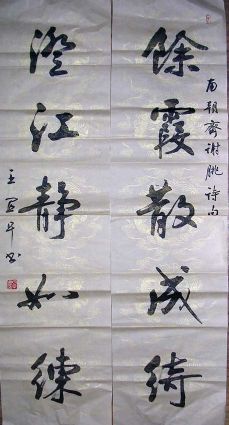 餘霞散成綺
南朝齊謝朓詩句
澄江靜如練